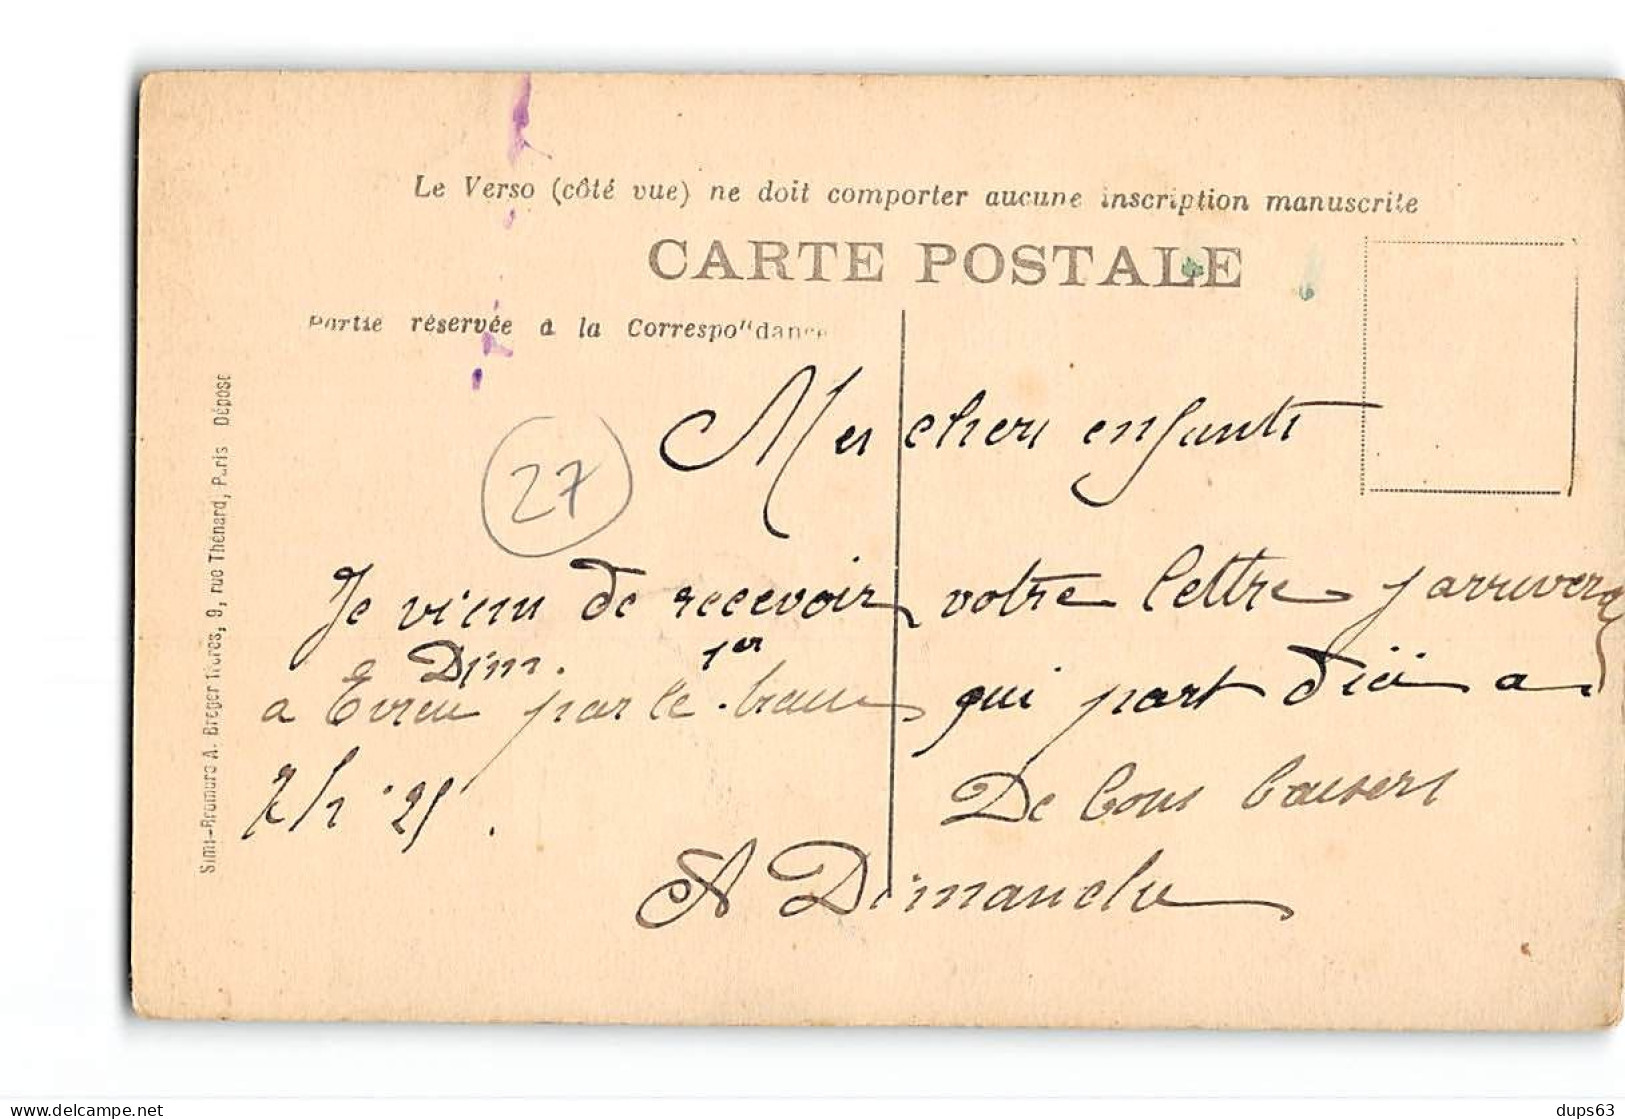 Le Verso (côté vue) ne doit comporter aucune inscription manuscrite
CARTE POSTALE
Partie réservée à la Correspondance
Simi-Bromure A. Breger frères, 9, rue Thénard, Paris Déposé
27
Mes chers enfants
Je viens de recevoir votre lettre j arriverai
Dim. 1er
a Evreu par le train qui part d'ici a
7 h 25.
De bons baisers
A Dimanche
delcampe.net
dups63